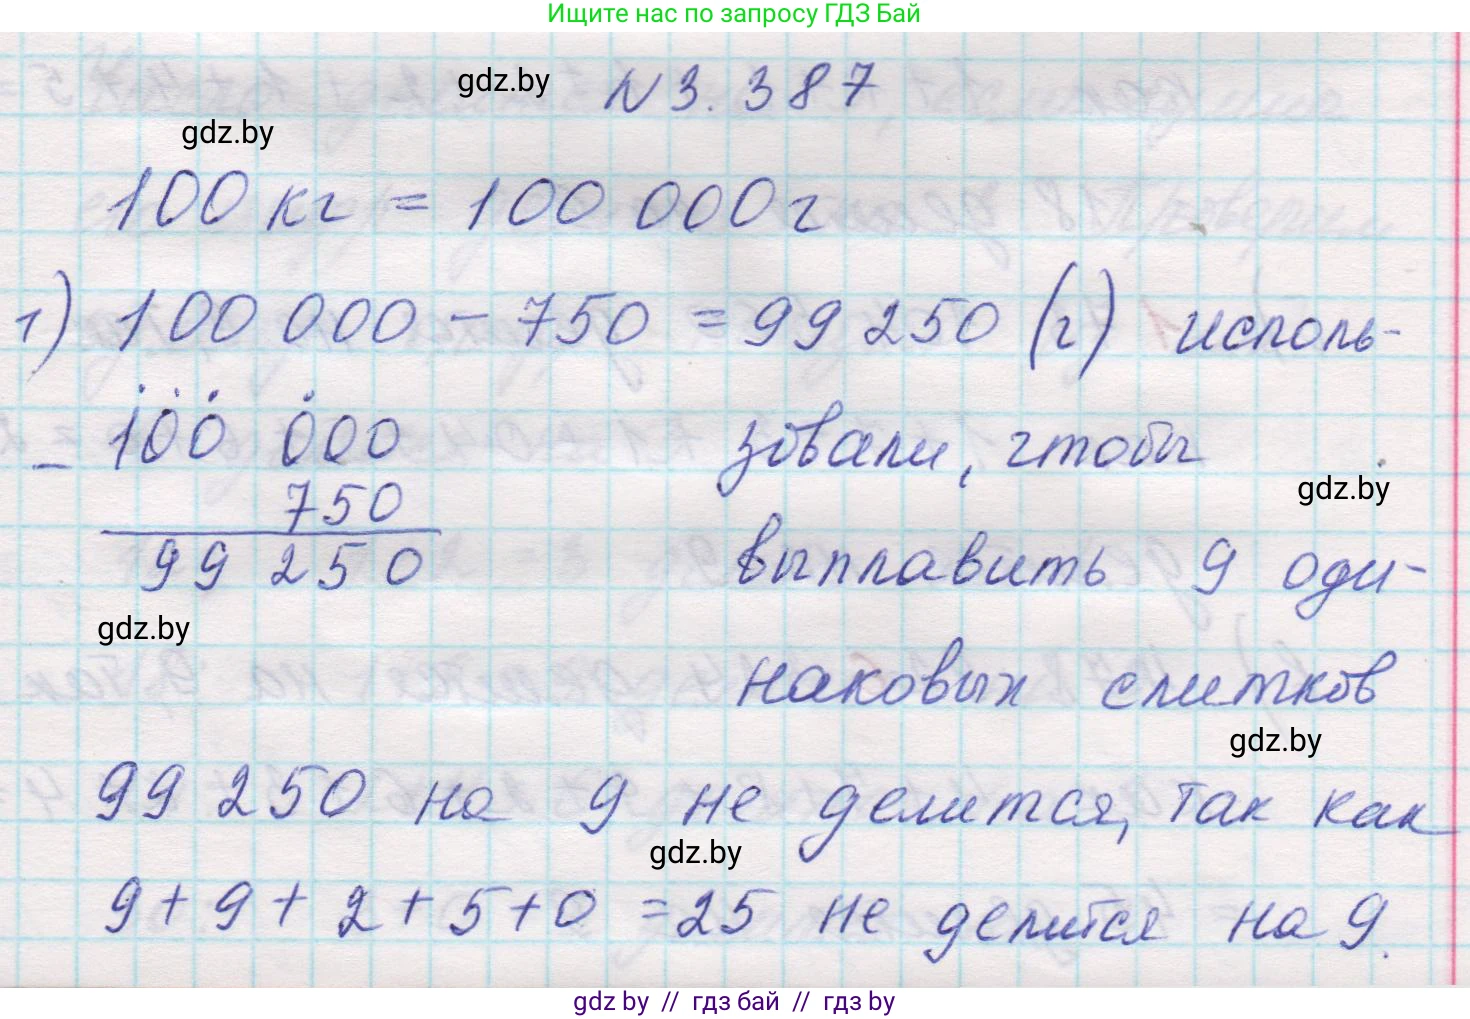 Ищите нас по запросу ГДЗ Бай
gdz.by
N 3. 387
gdz.by
100 кг = 100 000 г
1) 100 000 - 750 = 99 250 (г) исполь-
100 000
зовали, чтобы
-
750
gdz.by
99 250
выплавить 9 оди-
gdz.by
наковых слитков
gdz.by
99 250 на 9 не делится, так как
gdz.by
9 + 9 + 2 + 5 + 0 = 25 не делится на 9.
gdz by // гдз бай // гдз by